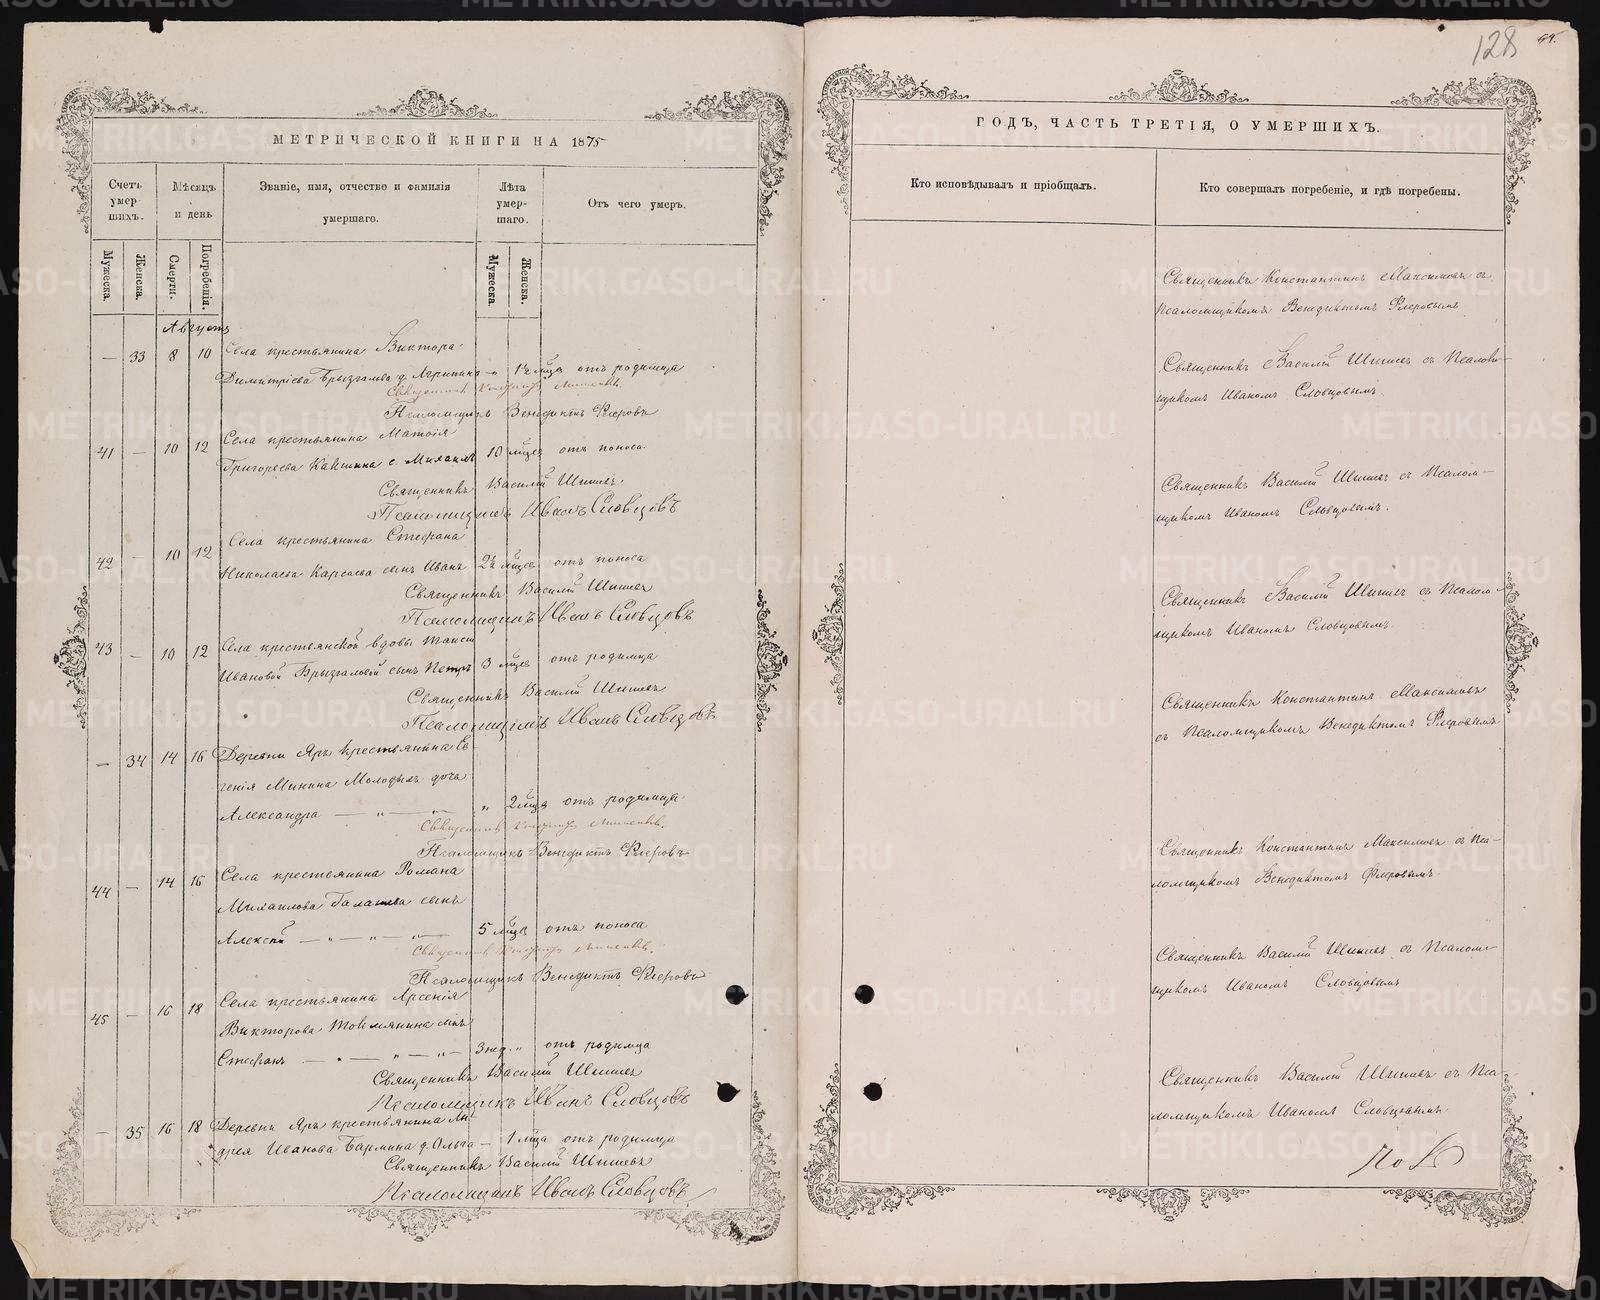 128
64.
МЕТРИЧЕСКОЙ КНИГИ НА 1875
Счетъ умерших.
Мѣсяцъ и день
Званіе, имя, отчество и фамилія умершаго.
Лѣта умершаго.
Отъ чего умеръ.
Мужеска.
Женска.
Смерти.
Погребенія.
Мужеска
Женска.
Августъ
— 33 8 10 Села крестьянина Виктора
Димитріева Брызгалова д. Агрипина — 1½ мѣца отъ родимца
Священникъ
Псаломщикъ Венедиктъ Флеровъ
41 — 10 12 Села крестьянина Матѳія
Григорьева с. Михаилъ 10 мѣцев отъ поноса
Священникъ Василій Шишевъ
Псаломщикъ Иванъ Словцовъ
42 — 10 12 Села крестьянина Стефана
Николаева сынъ Иванъ 2½ мѣцев отъ поноса
Священникъ Василій Шишевъ
Псаломщикъ Иванъ Словцовъ
43 — 10 12 Села крестьянской вдовы
Ивановой Брызгаловой сынъ Петръ 3 мѣцев отъ родимца
Священникъ Василій Шишевъ
Псаломщикъ Иванъ Словцовъ
— 34 14 16 Деревни Яръ крестьянина Ев
генія Минина Молодыхъ дочь
Александра — „ — „ — „ 2 мѣца отъ родимца
Священникъ
Псаломщикъ Венедиктъ Флеровъ
44 — 14 16 Села крестьянина Романа
Михаилова сынъ
Алексѣй — „ — „ — „ — 5 мѣцев отъ поноса
Священникъ
Псаломщикъ Венедиктъ Флеровъ
45 — 16 18 Села крестьянина Арсенія
Викторова сынъ
Стефанъ — „ — „ — „ — 3 нед. „ отъ родимца
Священникъ Василій Шишевъ
Псаломщикъ Иванъ Словцовъ
— 35 16 18 Деревни Яръ крестьянина Ан
дрея Иванова д. Ольга — 1 мѣца отъ родимца
Священникъ Василій Шишевъ
Псаломщикъ Иванъ Словцовъ
ГОДЪ, ЧАСТЬ ТРЕТІЯ, О УМЕРШИХЪ.
Кто исповѣдывалъ и пріобщалъ.
Кто совершалъ погребеніе, и гдѣ погребены.
Священникъ Константинъ Максимовъ съ
Псаломщикомъ Венедиктомъ Флеровымъ
Священникъ Василій Шишевъ съ Псалом-
щикомъ Иваномъ Словцовымъ
Священникъ Василій Шишевъ съ Псалом-
щикомъ Иваномъ Словцовымъ.
Священникъ Василій Шишевъ съ Псалом-
щикомъ Иваномъ Словцовымъ.
Священникъ Константинъ Максимовъ
съ Псаломщикомъ Венедиктомъ Флеровымъ
Священникъ Константинъ Максимовъ съ Пса-
ломщикомъ Венедиктомъ Флеровымъ
Священникъ Василій Шишевъ съ Псалом-
щикомъ Иваномъ Словцовымъ
Священникъ Василій Шишевъ съ Пса-
ломщикомъ Иваномъ Словцовымъ
METRIKI.GASO-URAL.RU